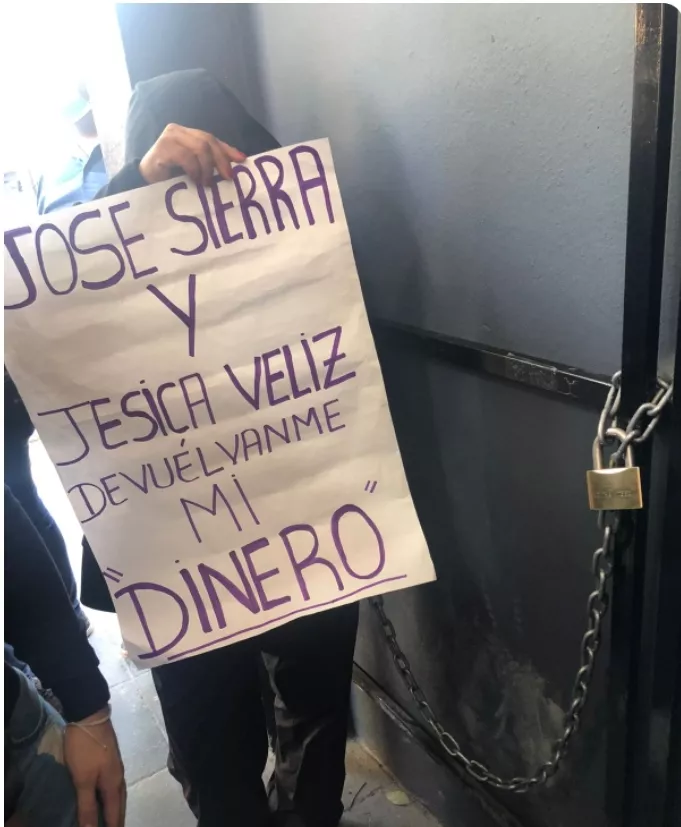 JOSE SIERRA
Y
JESICA VELIZ
DEVUÉLVANME
MI
"DINERO"